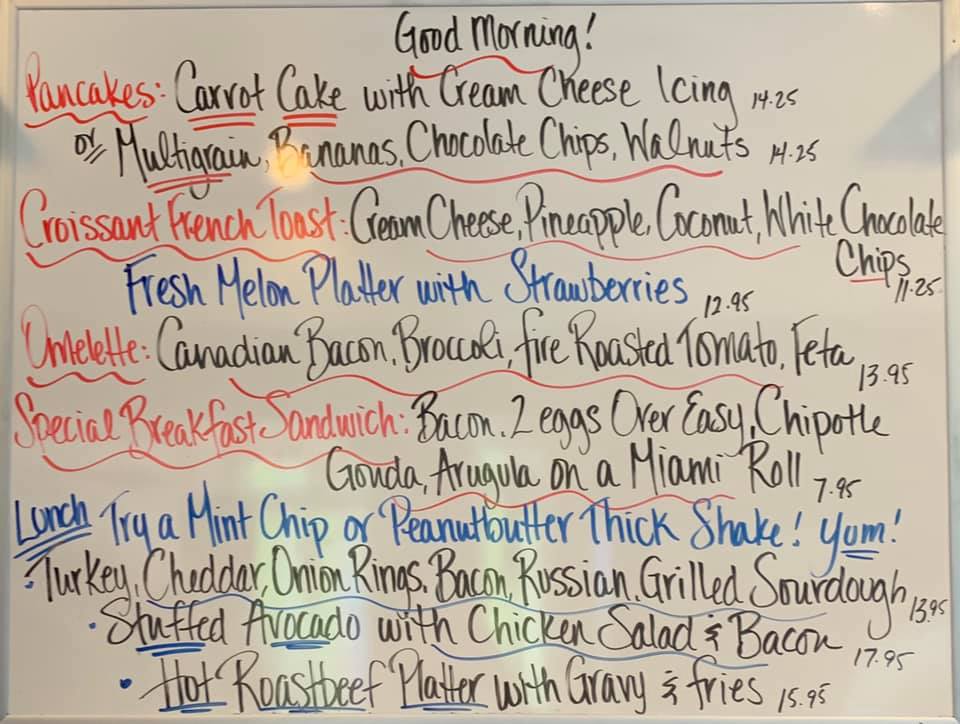 Good Morning!
Pancakes: Carrot Cake with Cream Cheese Icing 14.25
or Multigrain, Bananas, Chocolate Chips, Walnuts 14.25
Croissant French Toast: Cream Cheese, Pineapple, Coconut, White Chocolate
Chips 11.25
Fresh Melon Platter with Strawberries 12.95
Omelette: Canadian Bacon, Broccoli, fire Roasted Tomato, Feta 13.95
Special Breakfast Sandwich: Bacon, 2 eggs Over Easy, Chipotle
Gouda, Arugula on a Miami Roll 7.95
Lunch Try a Mint Chip or Peanutbutter Thick Shake! Yum!
• Turkey, Cheddar, Onion Rings, Bacon, Russian, Grilled Sourdough 13.95
• Stuffed Avocado with Chicken Salad & Bacon 17.95
• Hot Roastbeef Platter with Gravy & fries 15.95